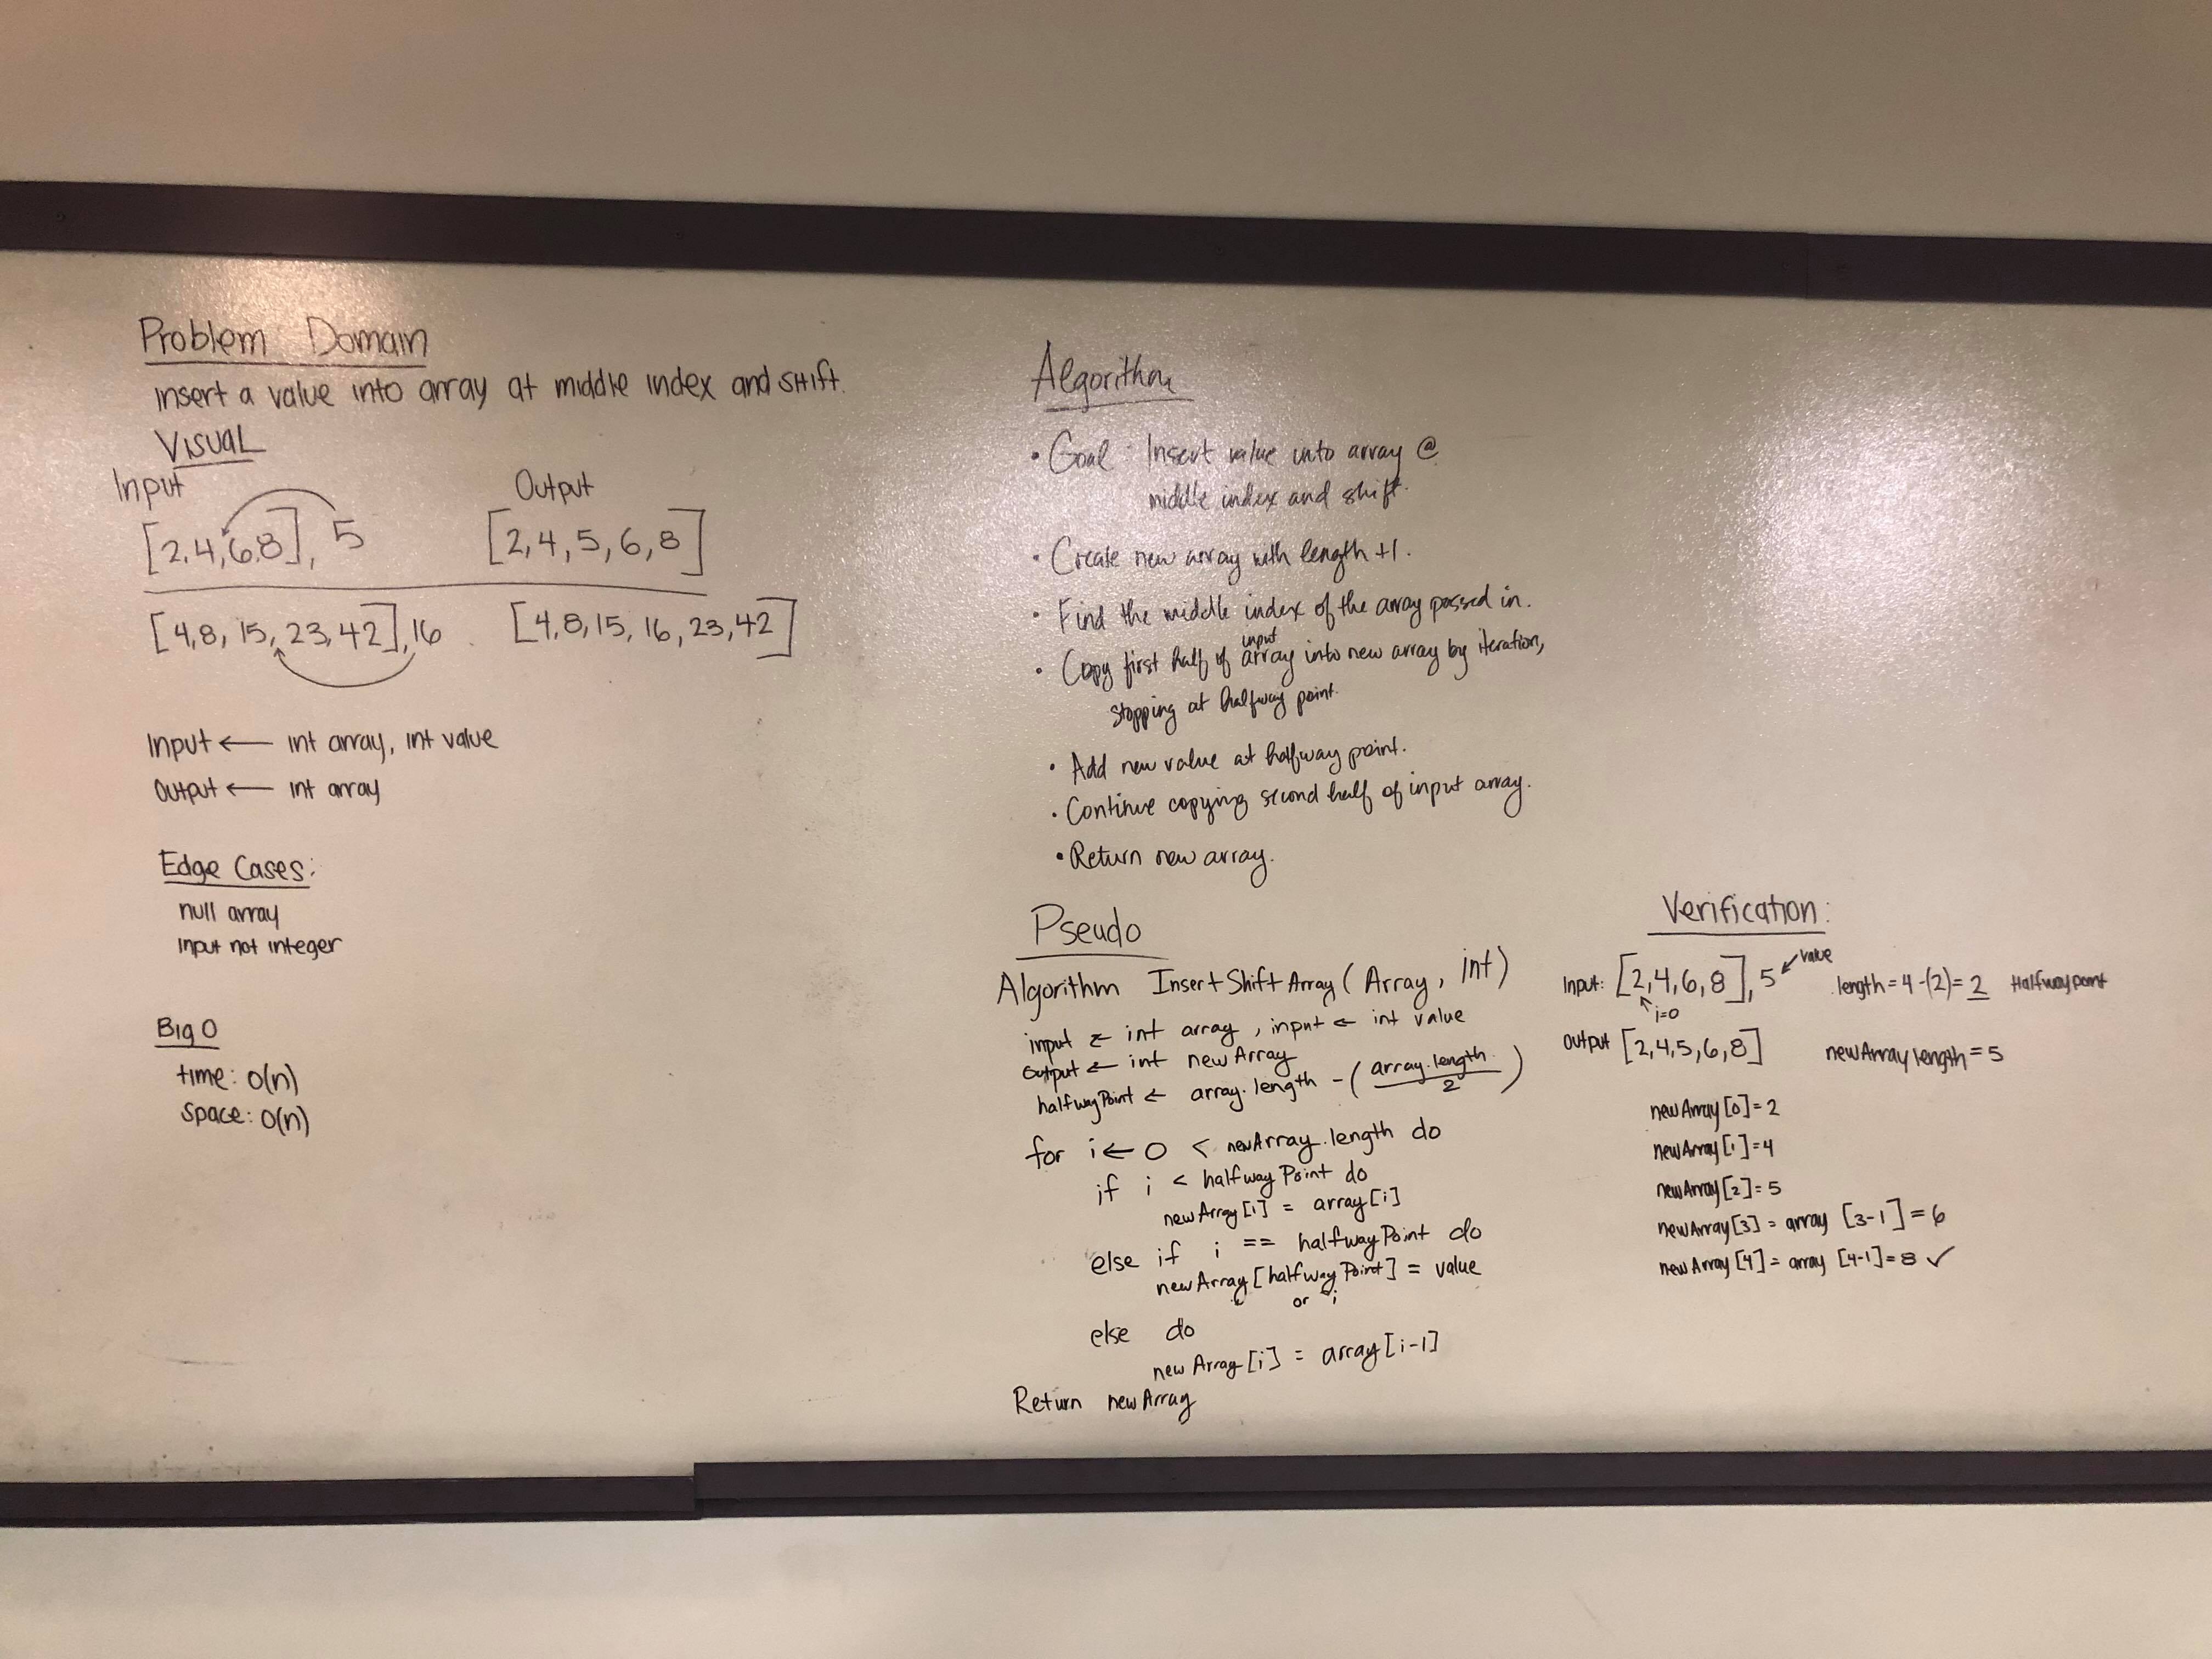 Problem Domain
insert a value into array at middle index and shift.
Visual
Input Output
[2,4,6,8], 5 [2,4,5,6,8]
[4,8,15,23,42],16 [4,8,15,16,23,42]
Input ← int array, int value
Output ← int array
Edge Cases:
null array
input not integer
Big O
time: O(n)
space: O(n)
Algorithm
• Goal: Insert value into array @
middle index and shift.
• Create new array with length +1.
• Find the middle index of the array passed in.
• Copy first half of input array into new array by iteration,
stopping at halfway point.
• Add new value at halfway point.
• Continue copying second half of input array.
• Return new array.
Pseudo
Algorithm InsertShiftArray(Array, int)
input ← int array, input ← int value
output ← int newArray
halfwayPoint ← array.length - (array.length / 2)
for i ← 0 < newArray.length do
if i < halfwayPoint do
newArray[i] = array[i]
else if i == halfwayPoint do
newArray[halfwayPoint] = value
or i
else do
newArray[i] = array[i-1]
Return newArray
Verification:
Input: [2,4,6,8], 5 ← value length = 4 - (2) = 2 Halfwaypoint
i=0
Output [2,4,5,6,8] newArray length = 5
newArray[0]=2
newArray[1]=4
newArray[2]=5
newArray[3] = array [3-1] = 6
newArray[4] = array [4-1] = 8 ✓